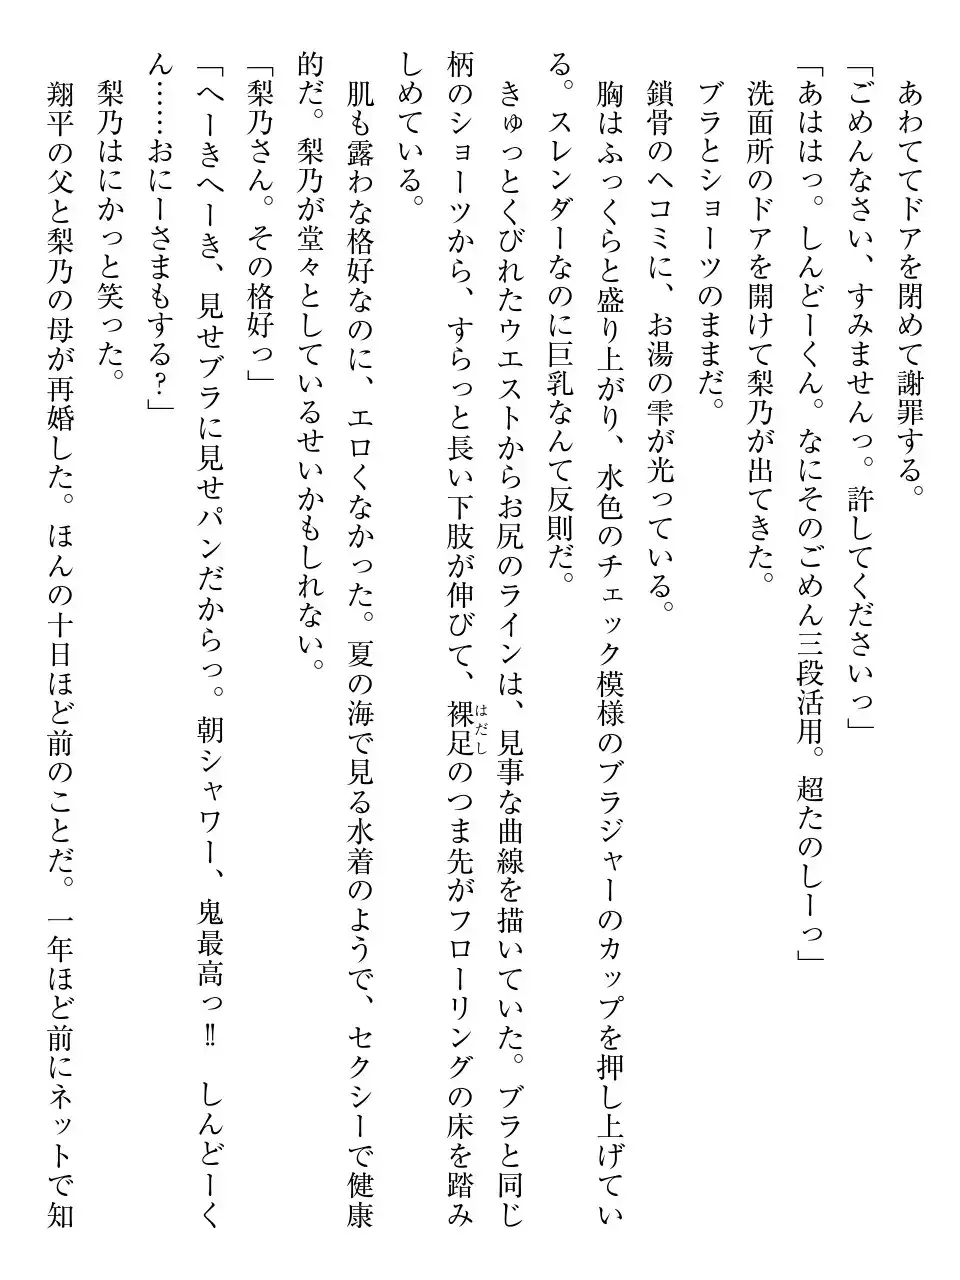 あわててドアを閉めて謝罪する。
「ごめんなさい、すみませんっ。許してくださいっ」
「あははっ。しんどーくん。なにそのごめん三段活用。超たのしーっ」
洗面所のドアを開けて梨乃が出てきた。
ブラとショーツのままだ。
鎖骨のヘコミに、お湯の雫が光っている。
胸はふっくらと盛り上がり、水色のチェック模様のブラジャーのカップを押し上げてい
る。スレンダーなのに巨乳なんて反則だ。
きゅっとくびれたウエストからお尻のラインは、見事な曲線を描いていた。ブラと同じ
柄のショーツから、すらっと長い下肢が伸びて、裸足のつま先がフローリングの床を踏み
はだし
しめている。
肌も露わな格好なのに、エロくなかった。夏の海で見る水着のようで、セクシーで健康
的だ。梨乃が堂々としているせいかもしれない。
「梨乃さん。その格好っ」
「へーきへーき、見せブラに見せパンだからっ。朝シャワー、鬼最高っ‼　しんどーく
ん……おにーさまもする?」
梨乃はにかっと笑った。
翔平の父と梨乃の母が再婚した。ほんの十日ほど前のことだ。一年ほど前にネットで知